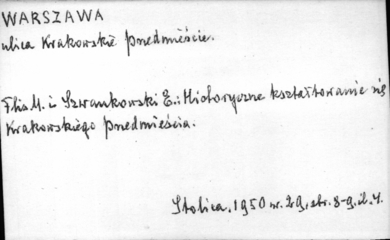 WARSZAWA
ulica Krakowskie Przedmieście.
Flis M. i Szwankowski E.: Historyczne kształtowanie się
Krakowskiego Przedmieścia.
Stolica, 1950 nr. 29, str. 8-9, il. 4.